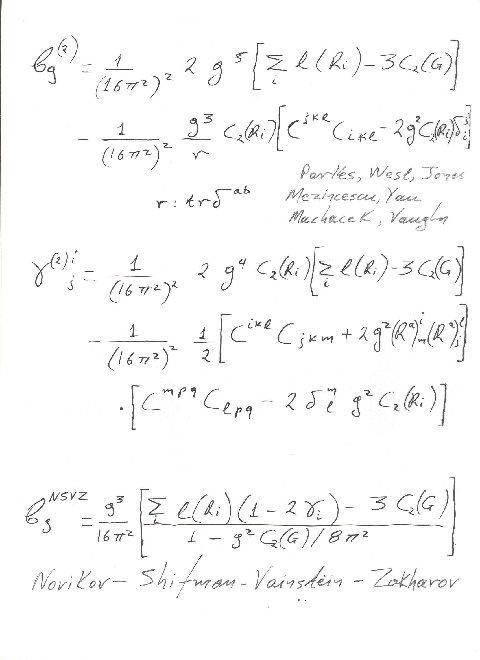 b_g^(2) = 1/(16π²)² 2 g⁵ [Σ_i l(R_i) - 3C₂(G)]
- 1/(16π²)² g³/r C₂(R_i) [C^{jkl} C_{ikl} - 2g² C₂(R_i) δ^j_i]
Parkes, West, Jones
r : tr δ^{ab} Mezincescu, Yau
Machacek, Vaughn
γ^{(2)i}_j = 1/(16π²)² 2 g⁴ C₂(R_i) [Σ_i l(R_i) - 3C₂(G)]
- 1/(16π²)² 1/2 [C^{ikl} C_{jkm} + 2g² (R^a)^i_m (R^a)^l_j]
· [C^{mpq} C_{lpq} - 2 δ^m_l g² C₂(R_i)]
b_g^{NSVZ} = g³/16π² [Σ_i l(R_i) (1 - 2γ_i) - 3 C₂(G) / 1 - g² C₂(G)/8π²]
Novikov - Shifman - Vainstein - Zakharov